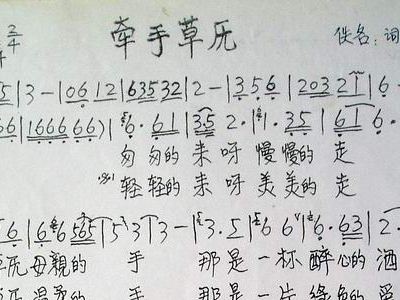 2/4 牵手草旡 佚名:词
5|3-|0612|63532|2-|356|2032 1|6
66|166666)|6·61|35 2·|1·35|61 6·
匆匆的 来呀 慢慢的 走
轻轻的 来呀 美美的 走
6|6 6 565|5 3 3-|3·5|6 6|6·63|2·
母親的 手 那是 一杯 醉心的 酒
温柔的 手 那是 一片 绿色的